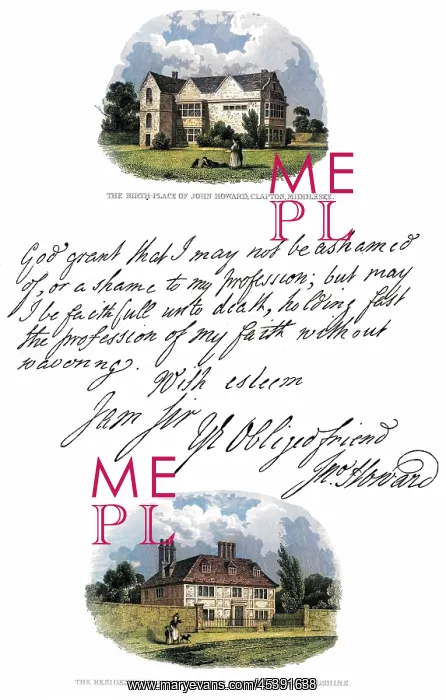 THE BIRTH-PLACE OF JOHN HOWARD, CLAPTON, MIDDLESEX.
ME
PL
God grant that I may not be ashamed
of, or a shame to my profession; but may
I be faithfull unto death, holding fast
the profession of my faith without
wavering.
With esteem
I am Sir
Yr Obliged friend
Jno. Howard
ME
PL
THE
www.maryevans.com/45391638